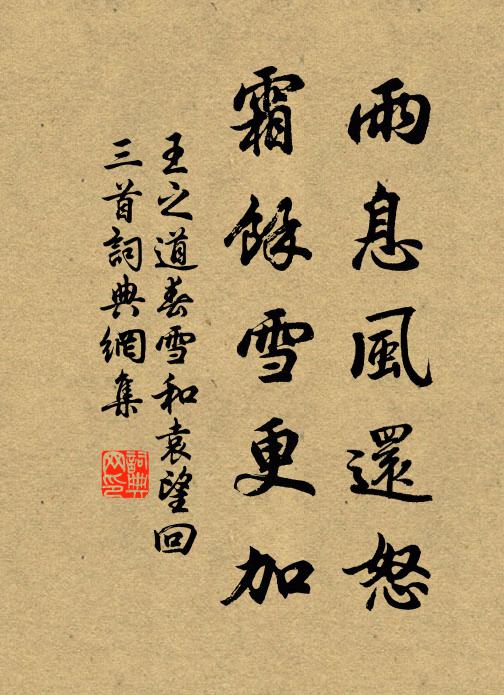 雨息風還怒
霜餘雪更加
王之道春雪和袁望回
三首詞典網集
詞典
网印